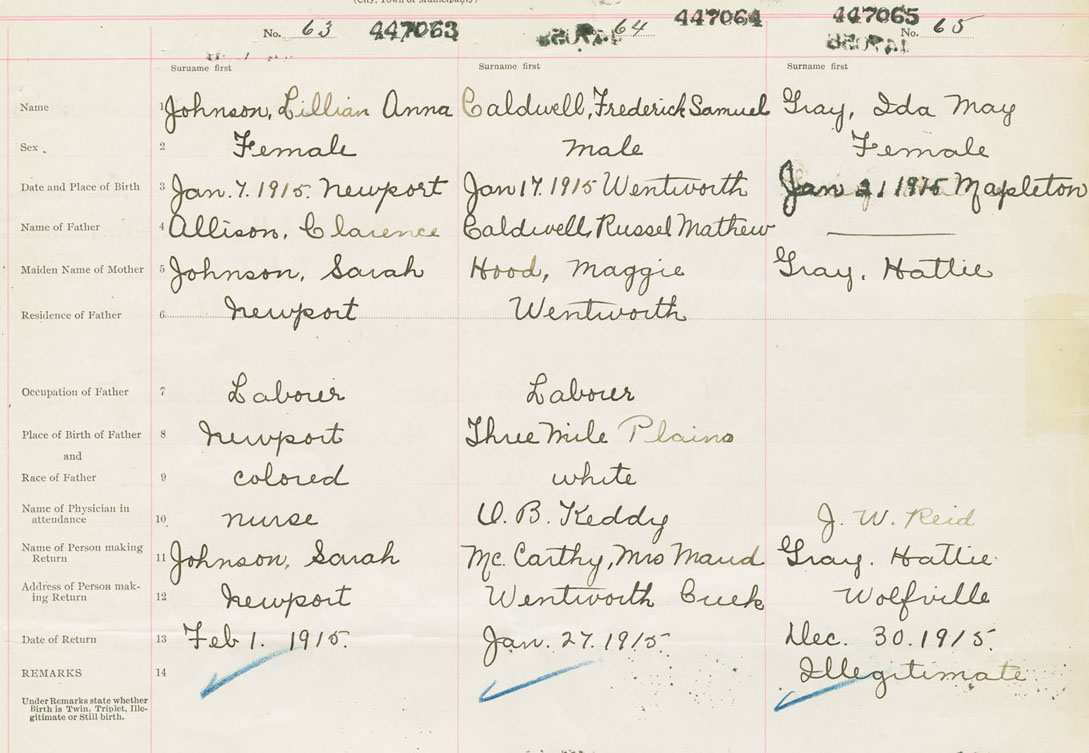 (City, Town or Municipality)
No. 63 447063 64 447064 447065 No. 65
Surname first Surname first Surname first
Name 1 Johnson, Lillian Anna Caldwell, Frederick Samuel Gray, Ida May
Sex. 2 Female Male Female
Date and Place of Birth 3 Jan. 7. 1915. Newport Jan 17. 1915 Wentworth Jan 21 1915 Mapleton
Name of Father 4 Allison, Clarence Caldwell, Russel Mathew
Maiden Name of Mother 5 Johnson, Sarah Hood, Maggie Gray, Hattie
Residence of Father 6 Newport Wentworth
Occupation of Father 7 Laborer Laborer
Place of Birth of Father 8 Newport Three Mile Plains
and
Race of Father 9 colored white
Name of Physician in
attendance 10 nurse O. B. Keddy J. W. Reid
Name of Person making
Return 11 Johnson, Sarah Mc. Carthy, Mrs Maud Gray. Hattie
Address of Person mak-
ing Return 12 Newport Wentworth Creek Wolfville
Date of Return 13 Feb 1. 1915. Jan. 27. 1915. Dec. 30. 1915.
REMARKS 14 Illegitimate
Under Remarks state whether
Birth is Twin, Triplet, Ille-
gitimate or Still birth.